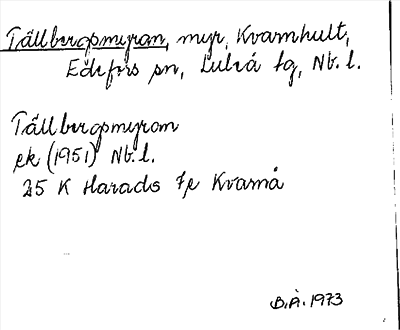 Tällbergsmyran, myr, Kvarnhult,
Edefors sn, Luleå tg, Nb. l.
Tällbergsmyran
ek (1951) Nb. l.
25 K Harads Kvarnå
B.Å. 1973